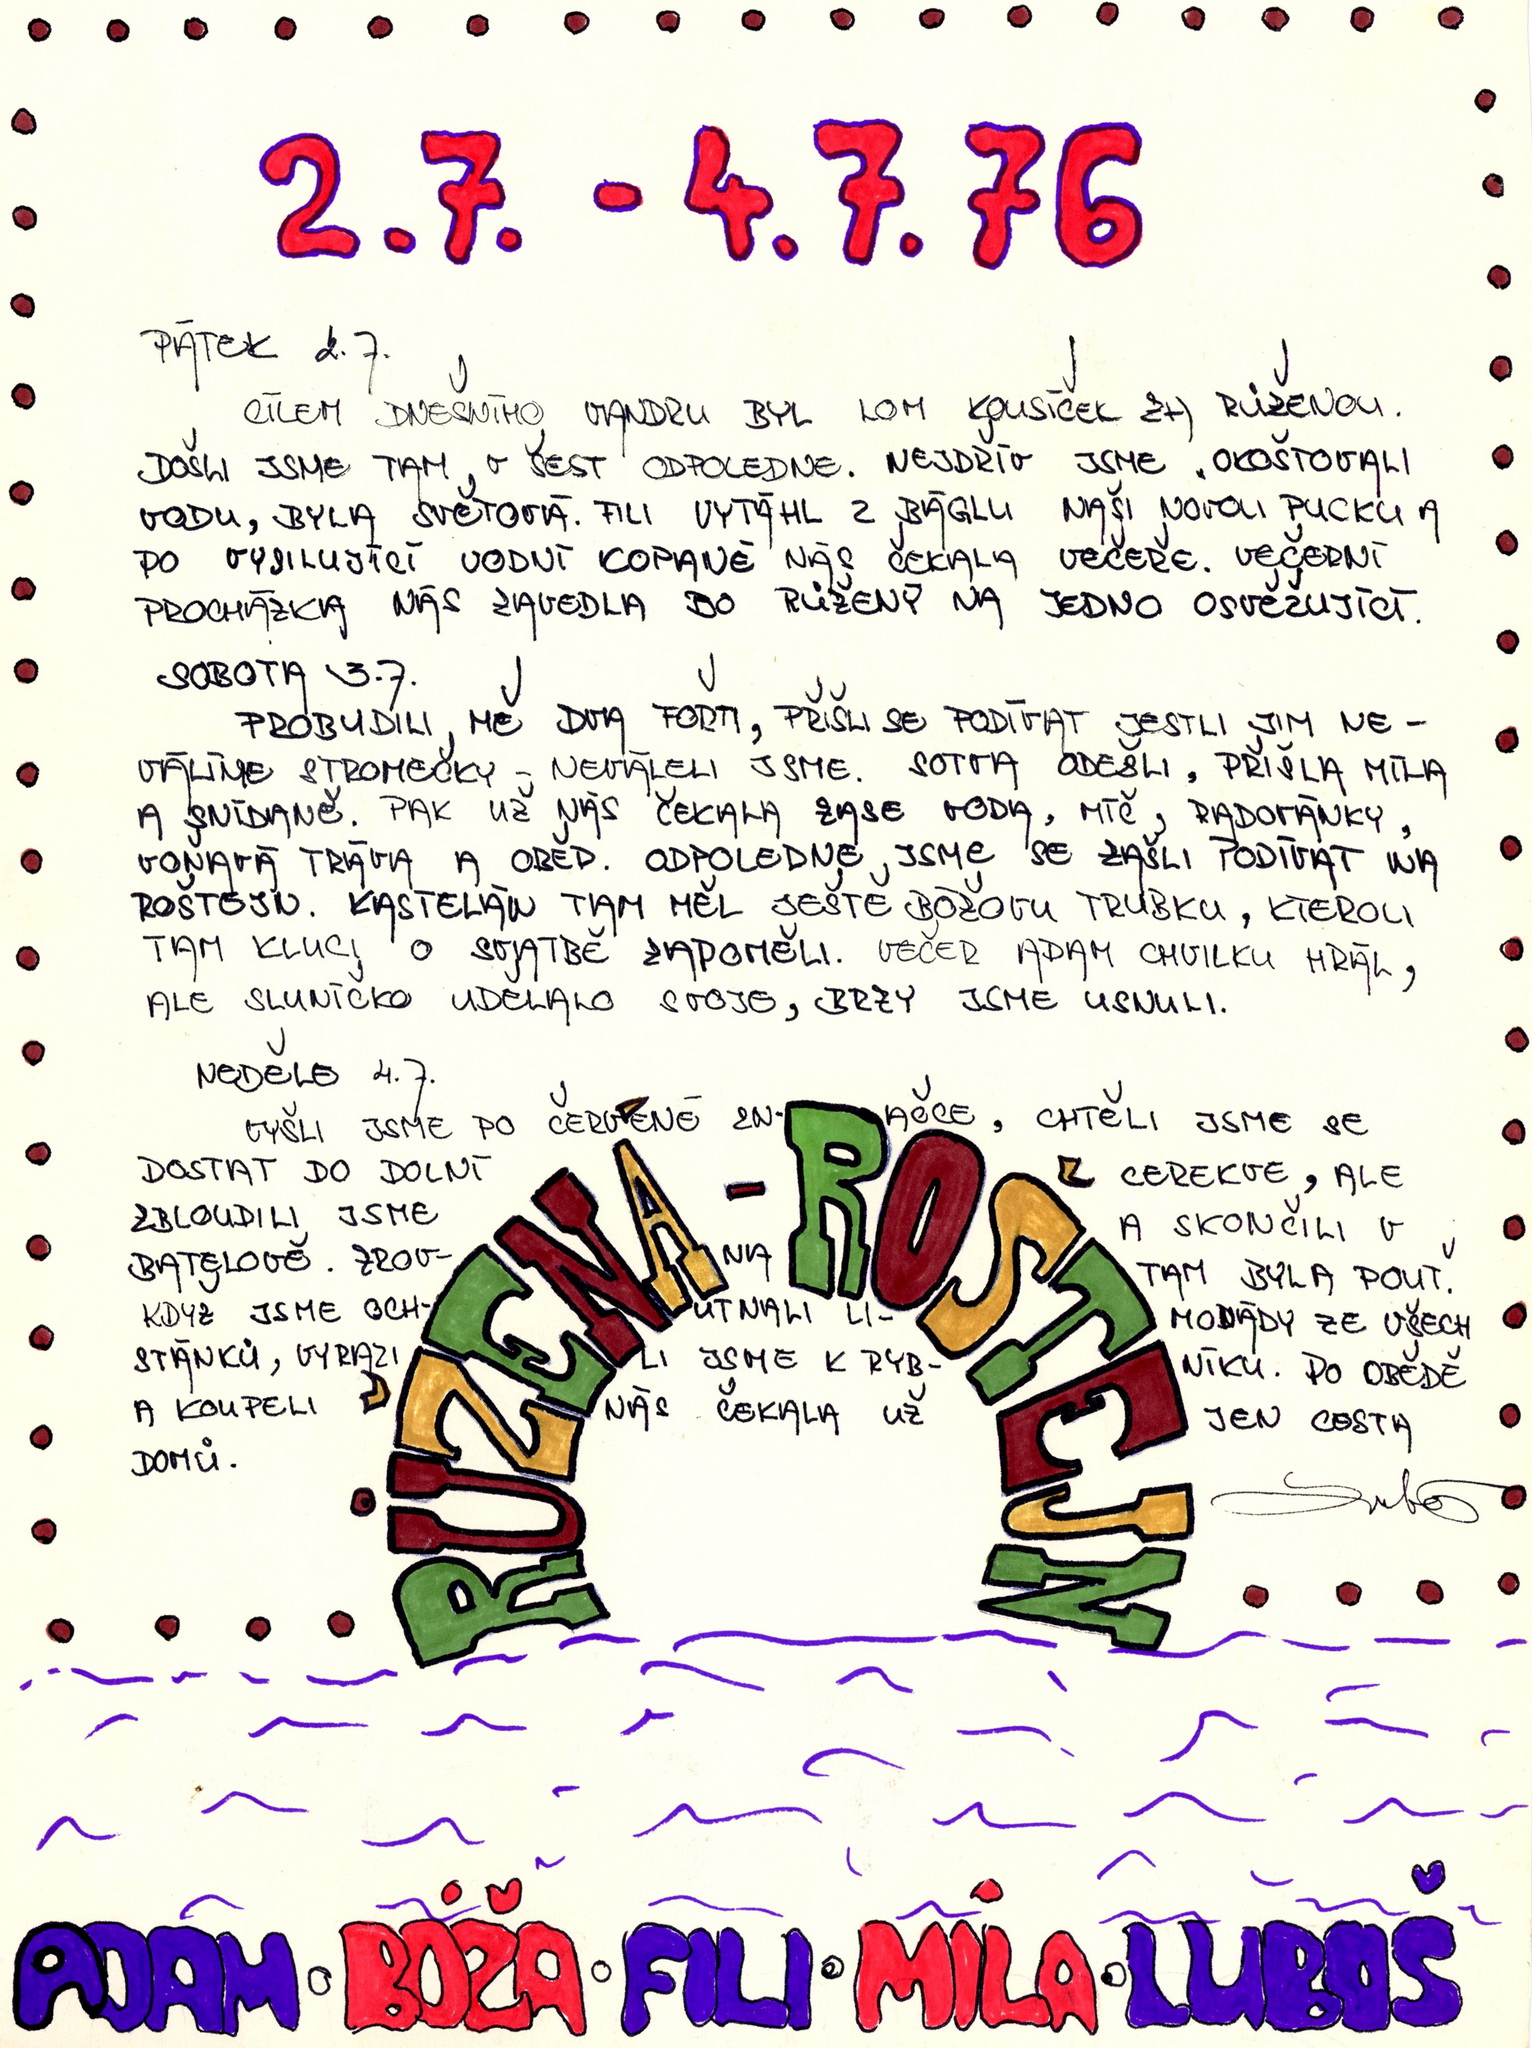 2.7. - 4.7.76
PÁTEK 2.7.
CÍLEM DNEŠNÍHO VANDRU BYL LOM KOUSÍČEK ZA RŮŽENOU.
DOŠLI JSME TAM V ŠEST ODPOLEDNE. NEJDŘÍV JSME OKOŠTOVALI
VODU, BYLA SVĚTOVÁ. FILI VYTÁHL Z BÁGLU NAŠI NOVOU PUCKU A
PO VYSILUJÍCÍ VODNÍ KOPANÉ NÁS ČEKALA VEČEŘE. VEČERNÍ
PROCHÁZKA NÁS ZAVEDLA DO RŮŽENÝ NA JEDNO OSVĚŽUJÍCÍ.
SOBOTA 3.7.
PROBUDILI MĚ DVA FOŘTI, PŘIŠLI SE PODÍVAT JESTLI JIM NE-
VÁLÍME STROMEČKY - NEVÁLELI JSME. SOTVA ODEŠLI, PŘIŠLA MÍLA
A SNÍDANĚ. PAK UŽ NÁS ČEKALA ZASE VODA, MÍČ, RADOVÁNKY,
VOŇAVÁ TRÁVA A OBĚD. ODPOLEDNE JSME SE ZAŠLI PODÍVAT NA
ROŠTEJN. KASTELÁN TAM MĚL JEŠTĚ BÓŽOVU TRUBKU, KTEROU
TAM KLUCI O SVATBĚ ZAPOMĚLI. VEČER ADAM CHVILKU HRÁL,
ALE SLUNÍČKO UDĚLALO SVOJE, BRZY JSME USNULI.
NEDĚLE 4.7.
VYŠLI JSME PO ČERVENÉ ZN- AČCE, CHTĚLI JSME SE
DOSTAT DO DOLNÍ CEREKVE, ALE
ZBLOUDILI JSME A SKONČILI V
BATELOVĚ. ZROV- NA TAM BYLA POUŤ.
KDYŽ JSME OCH- UTNALI LI- MONÁDY ZE VŠECH
STÁNKŮ, VYRAZI LI JSME K RYB- NÍKU. PO OBĚDĚ
A KOUPELI NÁS ČEKALA UŽ JEN CESTA
DOMŮ.
RŮŽENÁ - ROŠTEJN
ADAM · BÓŽA · FILI · MÍLA · LUBOŠ